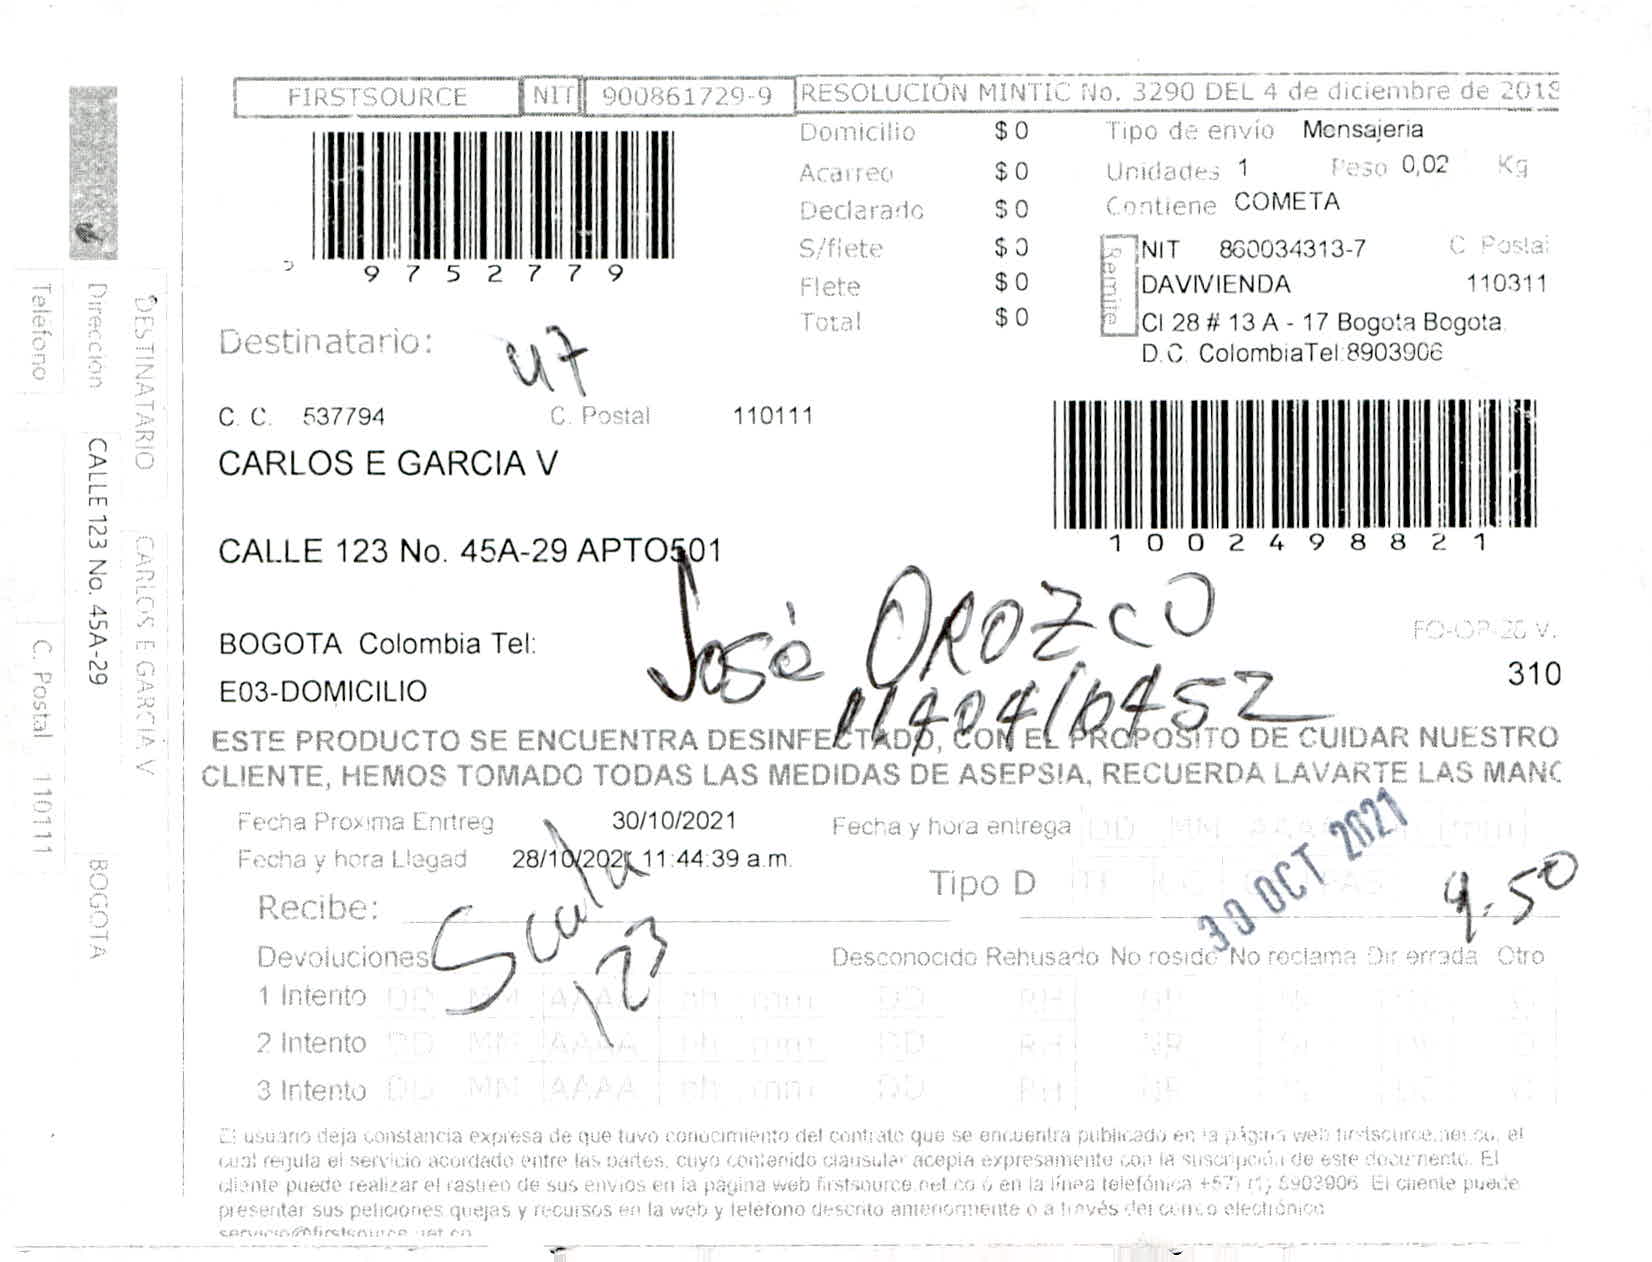 FIRSTSOURCE NIT 900861729-9 RESOLUCIÓN MINTIC No. 3290 DEL 4 de diciembre de 2018
Domicilio $ 0
Acarreo $ 0
Declarado $ 0
S/flete $ 0
Flete $ 0
Total $ 0
Tipo de envío Mensajeria
Unidades 1 Peso 0,02 Kg
Contiene COMETA
Remite
NIT 860034313-7 C Postal
DAVIVIENDA 110311
Cl 28 # 13 A - 17 Bogota Bogota
D.C. ColombiaTel:8903906
9752779
Destinatario: 47
C. C. 537794 C. Postal 110111
CARLOS E GARCIA V
CALLE 123 No. 45A-29 APTO501
1002498821
BOGOTA Colombia Tel:
E03-DOMICILIO
José OROZCO
FO-OP-26 V.
310
ESTE PRODUCTO SE ENCUENTRA DESINFECTADO, CON EL PROPOSITO DE CUIDAR NUESTRO
CLIENTE, HEMOS TOMADO TODAS LAS MEDIDAS DE ASEPSIA, RECUERDA LAVARTE LAS MANO
Fecha Proxima Entreg 30/10/2021
Fecha y hora Llegad 28/10/2021 11:44:39 a.m.
Fecha y hora entrega DD MM AAAA mm
Tipo D
30 OCT 2021
9.50
Recibe:
Scala
123
Devoluciones Desconocido Rehusado No reside No reclama Dir errada Otro
1 Intento DD MM AAAA hh mm DD RH NR
2 Intento DD MM AAAA hh mm DD RH NR
3 Intento DD MM AAAA hh mm DD RH NR
El usuario deja constancia expresa de que tuvo conocimiento del contrato que se encuentra publicado en la página web firstsource.net.co, el
cual regula el servicio acordado entre las partes, cuyo contenido clausular acepta expresamente con la suscripción de este documento. El
cliente puede realizar el rastreo de sus envios en la página web firstsource.net.co ó en la línea telefónica +57) (1) 8903906 El cliente puede
presentar sus peticiones quejas y recursos en la web y teléfono descrito anteriormente o a través del correo electrónico
servicio@firstsource.net.co
DESTINATARIO CARLOS E GARCIA V
Dirección CALLE 123 No. 45A-29 BOGOTA
Teléfono C. Postal 110111